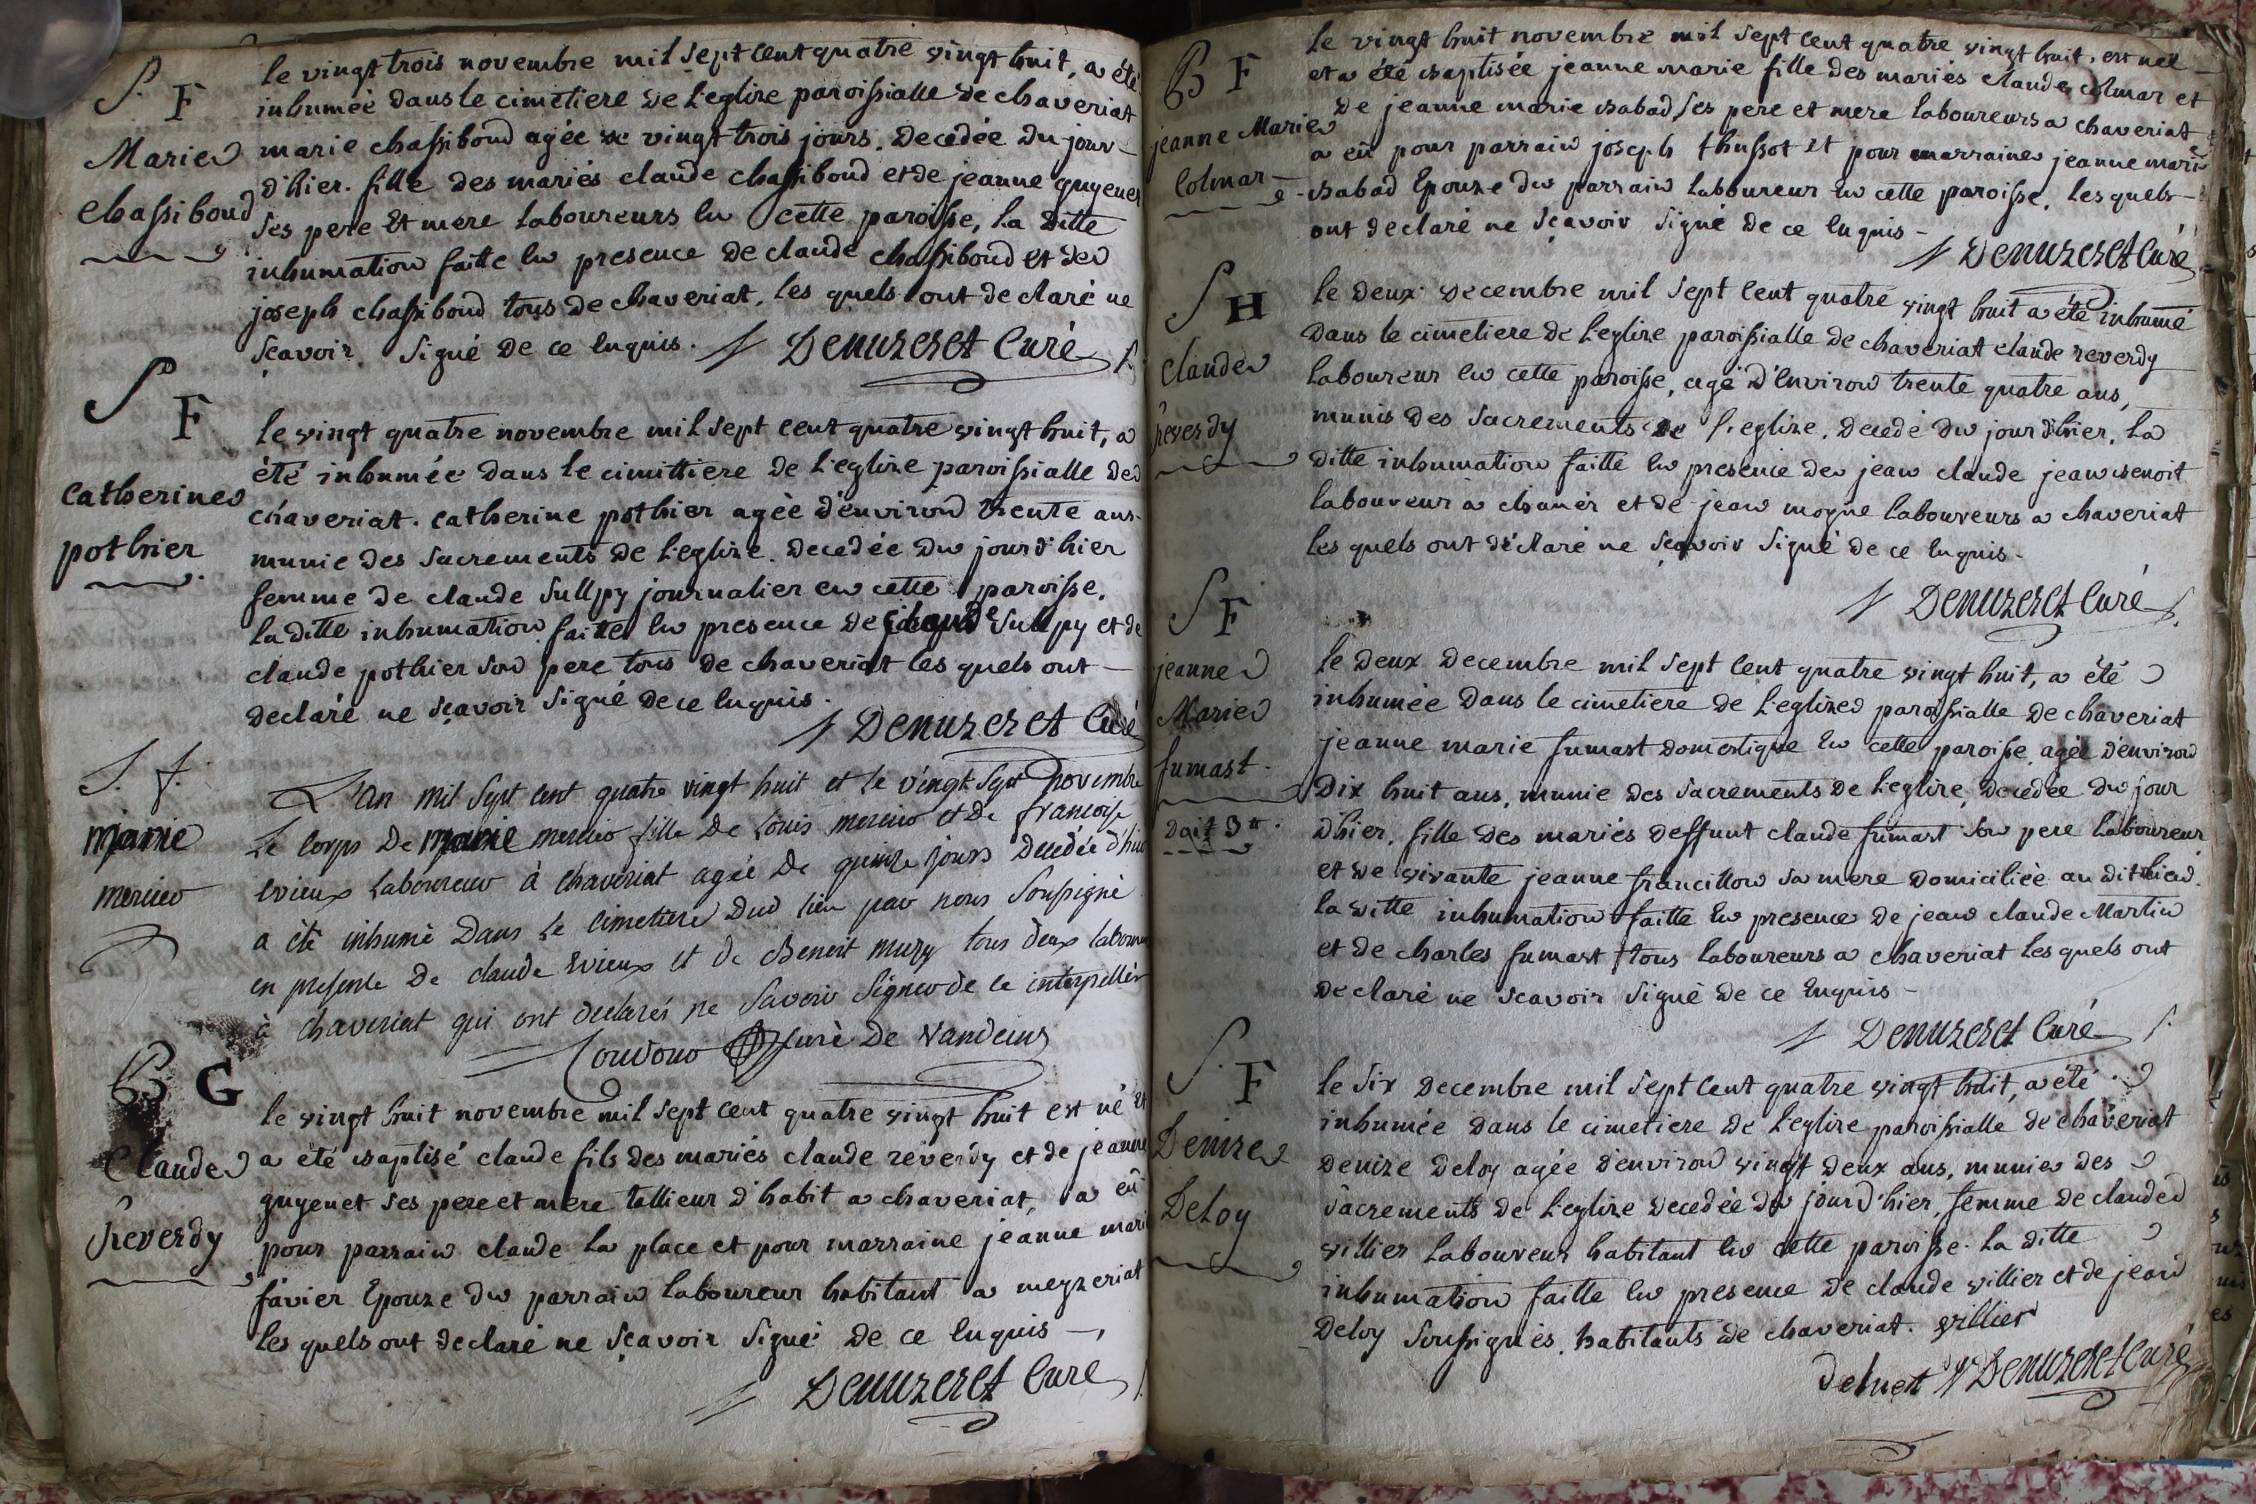 S. F
Marie
chassiboud
le vingt trois novembre mil sept cent quatre vingt huit, a été
inhumée dans le cimetiere de l'eglise paroissialle de chaveriat
marie chassiboud agée de vingt trois jours. decedée du jour
d'hier. fille des mariés claude chassiboud et de jeanne guyenet
ses pere et mere laboureurs en cette paroisse, la ditte
inhumation faitte en presence de claude chassiboud et de
joseph chassiboud tous de chaveriat. les quels ont declaré ne
sçavoir signé de ce enquis. Denuzeret Curé
S F
catherine
pothier
le vingt quatre novembre mil sept cent quatre vingt huit, a
été inhumée dans le cimittiere de l'eglize paroissialle de
chaveriat. catherine pothier agèe d'environ trente ans.
munie des sacrements de l'eglize. decedée du jour d'hier
femme de claude sullpy journalier en cette paroisse.
la ditte inhumation faitte en presence de claude sullpy et de
claude pothier son pere tous de chaveriat les quels ont
declaré ne sçavoir signé de ce enquis.
Denuzeret Curé
S. f.
marie
mercier
L'an mil sept cent quatre vingt huit et le vingt sept novembre
le corps de marie mercier fille de Louis mercier et de francoise
evieux laboureur à chaveriat agée de quinze jours decedée d'hier
a été inhumé dans le cimetiere dud lieu par nous soussigné
en presence de claude evieux et de Benoit muzy tous deux
à chaveriat qui ont declarés ne savoir signer de ce interpellés
curé de vandeins
B G
Claude
Reverdy
le vingt huit novembre mil sept cent quatre vingt huit est né et
a été baptisé claude fils des mariés claude reverdy et de jeanne
guyenet ses pere et mere tallieur d'habit a chaveriat, a eu
pour parrain claude la place et pour marraine jeanne marie
favier epouze du parrain laboureur habitant a meyzeriat
les quels ont declaré ne sçavoir signé de ce enquis
Denuzeret Curé
B F
jeanne Marie
Colmar
le vingt huit novembre mil sept cent quatre vingt huit. est neé
et a été baptisée jeanne marie fille des mariés claude colmar et
de jeanne marie babad, ses pere et mere laboureurs a chaveriat
a eû pour parrain joseph thussot et pour marraine jeanne marie
babad epouze du parrain laboureur en cette paroisse. les quels
ont declaré ne sçavoir signé de ce enquis
Denuzeret Curé
S H
Claude
Reverdy
le deux decembre mil sept cent quatre vingt huit a été inhumé
dans le cimetiere de l'eglize paroissialle de chaveriat claude reverdy
laboureur en cette paroisse, agé d'environ trente quatre ans,
munis des sacrements de l'eglize. decedé du jour d'hier. la
ditte inhumation faitte en presence de jean claude jean benoit
laboureur a chanés et de jean moyne laboureurs a chaveriat
les quels ont déclaré ne sçavoir signé de ce enquis.
Denuzeret Curé
S F
jeanne
Marie
fumast
doit 3 tt.
le deux decembre mil sept cent quatre vingt huit, a été
inhumée dans le cimetiere de l'eglize paroissialle de chaveriat
jeanne marie fumast domestique en cette paroisse, agée d'environ
dix huit ans, munie des sacrements de l'eglize, decedée du jour
d'hier, fille des mariés deffunt claude fumast son pere laboureur
et de vivante jeanne francillon sa mere domiciliée au dit lieu.
la ditte inhumation faitte en presence de jean claude Martin
et de charles fumast tous laboureurs a chaveriat les quels ont
declaré ne scavoir signé de ce enquis
Denuzeret Curé
S. F
Denize
Deloy
le six decembre mil sept cent quatre vingt huit, a été
inhumée dans le cimetiere de l'eglize paroissialle de chaveriat
denize deloy agée d'environ vingt deux ans, munie des
sacrements de l'eglize decedée du jour d'hier, femme de claude
villier laboureur habitant en cette paroisse. la ditte
inhumation faitte en presence de claude villier et de jean
deloy soussignés. habitants de chaveriat. villier
Denuzeret Curé